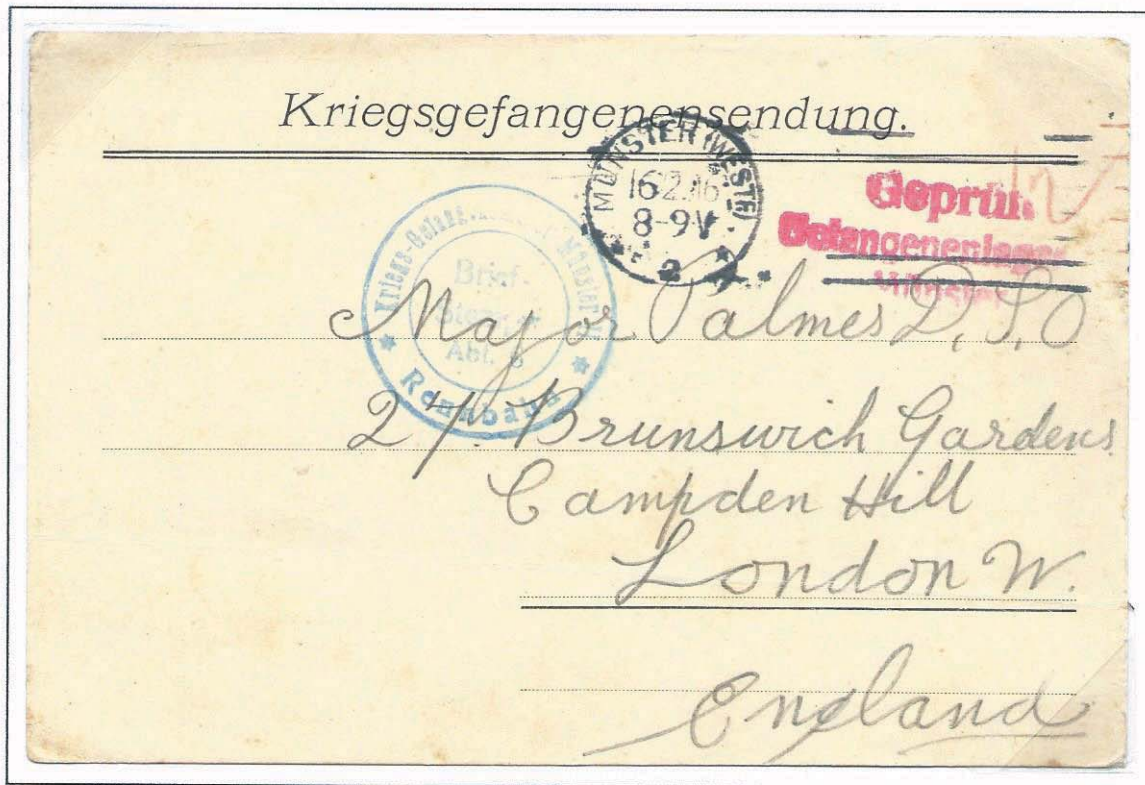 Kriegsgefangenensendung.
MÜNSTER (WESTF)
16.2.16
8-9V
* 2 *
Geprüft
Gefangenenlager
Münster
Münster II
Brief-
Abt.
* Rennbahn *
Major Palmes D.S.O
27. Brunswich Gardens
Campden Hill
London W.
England